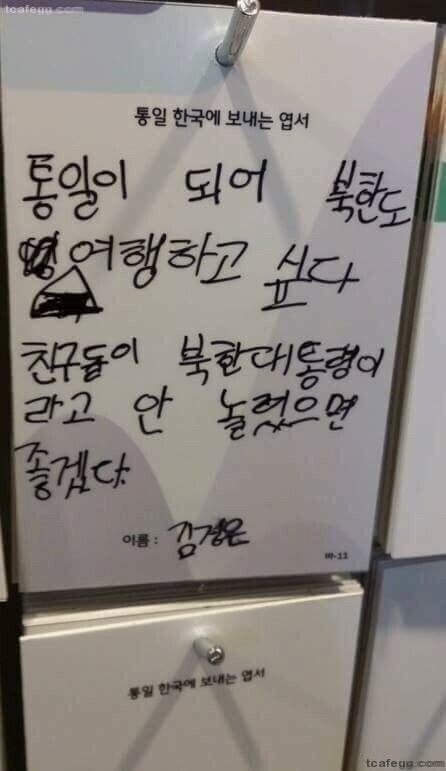 tcafegg.com
통일 한국에 보내는 엽서
통일이 되어 북한도
여행하고 싶다
친구들이 북한대통령이
라고 안 놀렸으면
좋겠다.
이름 : 김정은
통일 한국에 보내는 엽서
tcafegg.com